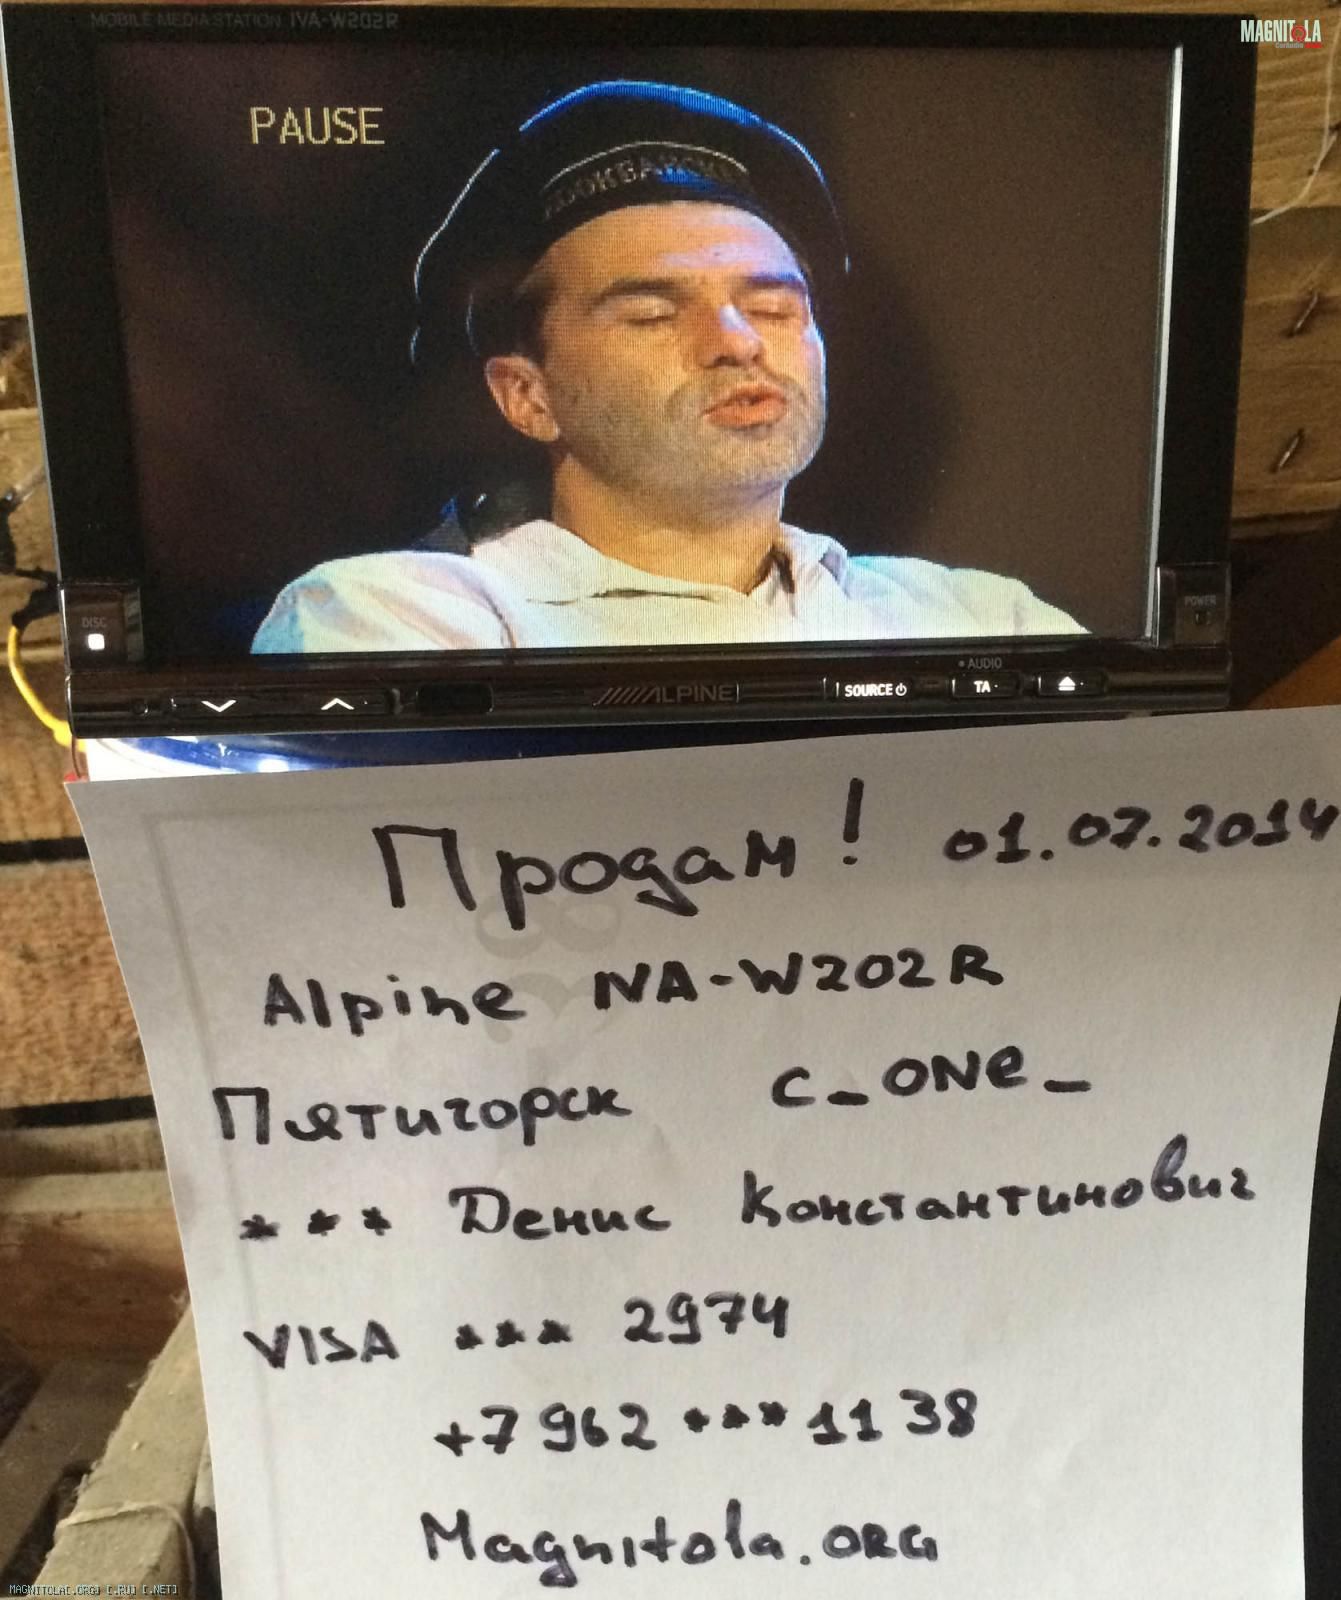 MOBILE MEDIA STATION IVA-W202R
MAGNITOLA
PAUSE
DISC
POWER
AUDIO
ALPINE
SOURCE
TA
Продам! 01.07.2014
Alpine IVA-W202R
Пятигорск C_ONe_
*** Денис Константинович
VISA *** 2974
+7 962 *** 11 38
Magnitola.ORG
MAGNITOLA[.ORG] [.RU] [.NET]